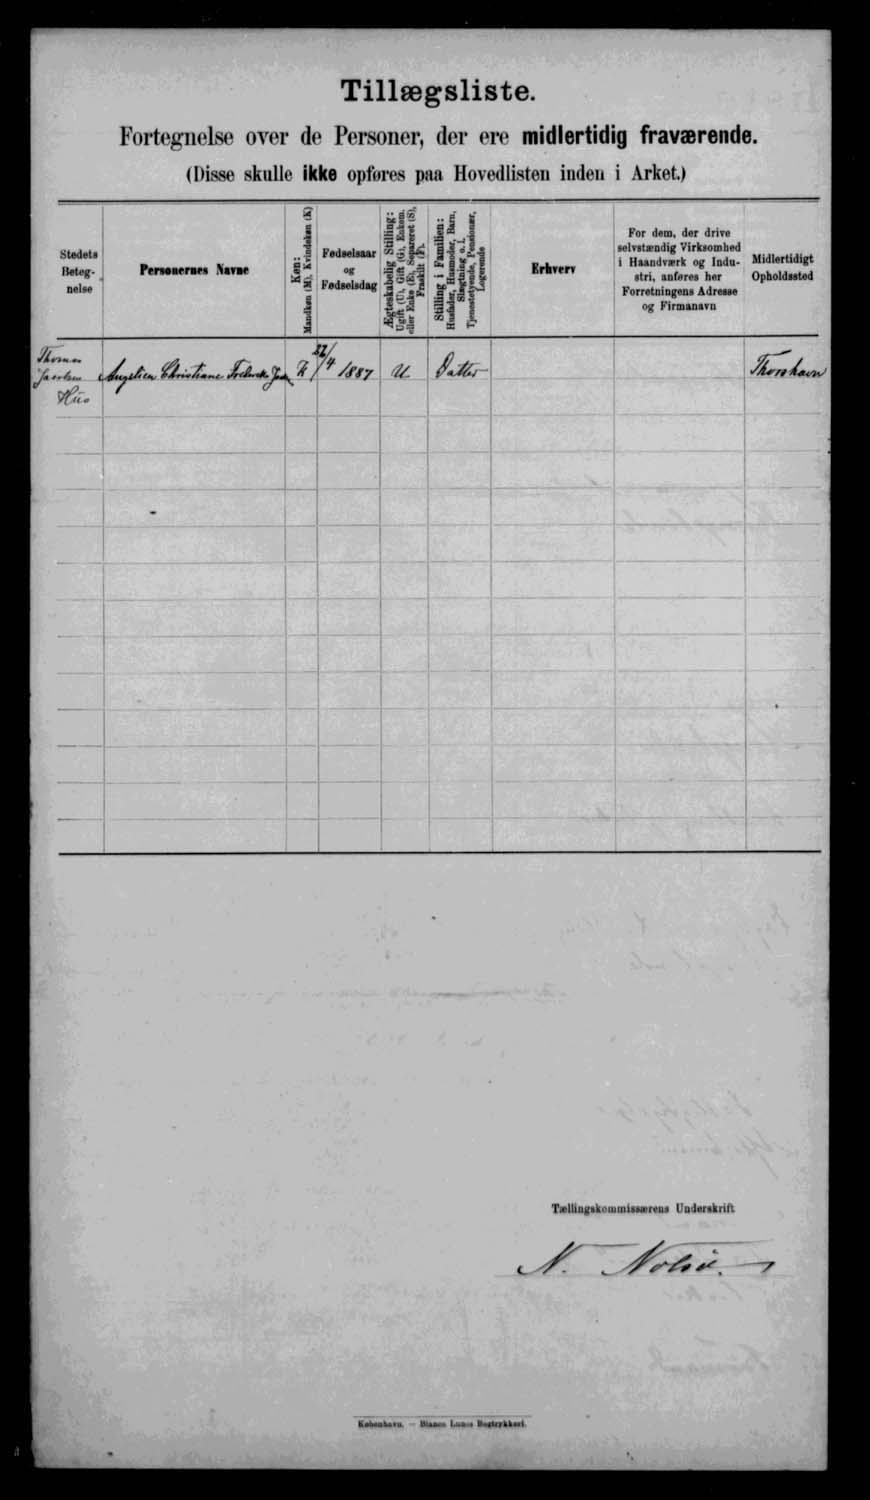 Tillægsliste.
Fortegnelse over de Personer, der ere midlertidig fraværende.
(Disse skulle ikke opføres paa Hovedlisten inden i Arket.)
Stedets
Beteg-
nelse
Personernes Navne
Køn:
Mandkøn (M), Kvindekøn (K)
Fødselsaar
og
Fødselsdag
Ægteskabelig Stilling:
Ugift (U), Gift (G), Enkem.
eller Enke (E), Separeret (S),
Fraskilt (F).
Stilling i Familien:
Husfader, Husmoder, Barn,
Slægtning o. l.
Tjenestetyende, Pensionær,
Logerende
Erhverv
For dem, der drive
selvstændig Virksomhed
i Haandværk og Indu-
stri, anføres her
Forretningens Adresse
og Firmanavn
Midlertidigt
Opholdssted
Thomas
Jacobsen
Hus
Christiane
K
22/4 1887
U
Datter
Thorshavn
Tællingskommissærens Underskrift
N. Nolsø.
København. — Bianco Lunos Bogtrykkeri.